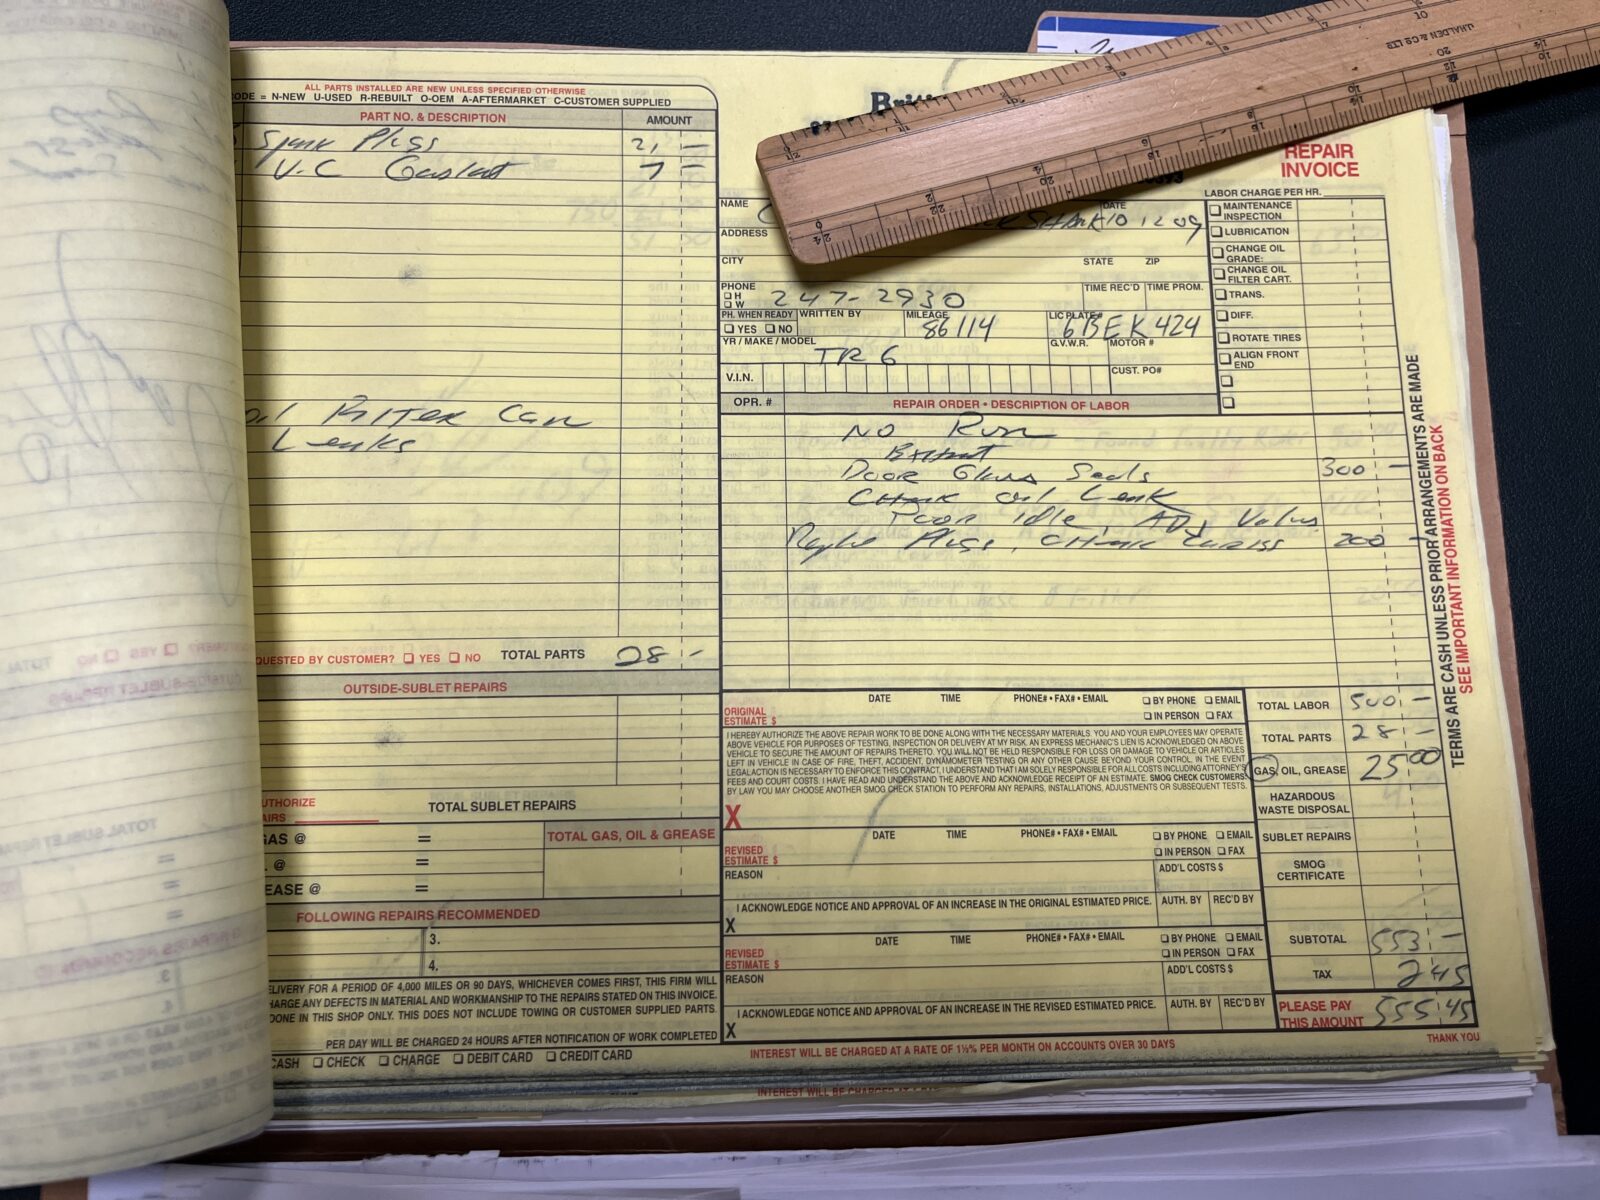 ALL PARTS INSTALLED ARE NEW UNLESS SPECIFIED OTHERWISE
ODE = N-NEW U-USED R-REBUILT O-OEM A-AFTERMARKET C-CUSTOMER SUPPLIED
PART NO. & DESCRIPTION AMOUNT
Spark Plugs 21 —
V.C Gasket 7 —
oil Filter Can
Leaks
QUESTED BY CUSTOMER? YES NO TOTAL PARTS 28 -
OUTSIDE-SUBLET REPAIRS
UTHORIZE
AIRS
TOTAL SUBLET REPAIRS
GAS @ = TOTAL GAS, OIL & GREASE
. @ =
EASE @ =
FOLLOWING REPAIRS RECOMMENDED
3.
4.
ELIVERY FOR A PERIOD OF 4,000 MILES OR 90 DAYS, WHICHEVER COMES FIRST, THIS FIRM WILL
HARGE ANY DEFECTS IN MATERIAL AND WORKMANSHIP TO THE REPAIRS STATED ON THIS INVOICE.
DONE IN THIS SHOP ONLY. THIS DOES NOT INCLUDE TOWING OR CUSTOMER SUPPLIED PARTS.
PER DAY WILL BE CHARGED 24 HOURS AFTER NOTIFICATION OF WORK COMPLETED
CASH CHECK CHARGE DEBIT CARD CREDIT CARD
J.HALDEN & CO LTD
REPAIR
INVOICE
NAME DATE
10 12 09
ADDRESS
CITY STATE ZIP
PHONE
H
W
247-2930
TIME REC'D TIME PROM.
PH. WHEN READY YES NO
WRITTEN BY
MILEAGE 86114
LIC PLATE# 6BEK424
YR / MAKE / MODEL TR6
G.V.W.R. MOTOR #
V.I.N. CUST. PO#
LABOR CHARGE PER HR.
MAINTENANCE
INSPECTION
LUBRICATION
CHANGE OIL
GRADE:
CHANGE OIL
FILTER CART.
TRANS.
DIFF.
ROTATE TIRES
ALIGN FRONT
END
OPR. # REPAIR ORDER • DESCRIPTION OF LABOR
NO Run
Door Glass Seals 300 —
Check oil Leak
Poor idle, ADJ Valves
Plugs, Check 200 —
ORIGINAL
ESTIMATE $
DATE TIME PHONE# • FAX# • EMAIL BY PHONE EMAIL
IN PERSON FAX
I HEREBY AUTHORIZE THE ABOVE REPAIR WORK TO BE DONE ALONG WITH THE NECESSARY MATERIALS. YOU AND YOUR EMPLOYEES MAY OPERATE
ABOVE VEHICLE FOR PURPOSES OF TESTING, INSPECTION OR DELIVERY AT MY RISK. AN EXPRESS MECHANIC'S LIEN IS ACKNOWLEDGED ON ABOVE
VEHICLE TO SECURE THE AMOUNT OF REPAIRS THERETO. YOU WILL NOT BE HELD RESPONSIBLE FOR LOSS OR DAMAGE TO VEHICLE OR ARTICLES
LEFT IN VEHICLE IN CASE OF FIRE, THEFT, ACCIDENT, DYNAMOMETER TESTING OR ANY OTHER CAUSE BEYOND YOUR CONTROL. IN THE EVENT
LEGAL ACTION IS NECESSARY TO ENFORCE THIS CONTRACT, I UNDERSTAND THAT I AM SOLELY RESPONSIBLE FOR ALL COSTS INCLUDING ATTORNEY'S
FEES AND COURT COSTS. I HAVE READ AND UNDERSTAND THE ABOVE AND ACKNOWLEDGE RECEIPT OF AN ESTIMATE. SMOG CHECK CUSTOMERS:
BY LAW YOU MAY CHOOSE ANOTHER SMOG CHECK STATION TO PERFORM ANY REPAIRS, INSTALLATIONS, ADJUSTMENTS OR SUBSEQUENT TESTS.
X
REVISED
ESTIMATE $
DATE TIME PHONE# • FAX# • EMAIL BY PHONE EMAIL
IN PERSON FAX
REASON ADD'L COSTS $
I ACKNOWLEDGE NOTICE AND APPROVAL OF AN INCREASE IN THE ORIGINAL ESTIMATED PRICE. AUTH. BY REC'D BY
X
REVISED
ESTIMATE $
DATE TIME PHONE# • FAX# • EMAIL BY PHONE EMAIL
IN PERSON FAX
REASON ADD'L COSTS $
I ACKNOWLEDGE NOTICE AND APPROVAL OF AN INCREASE IN THE REVISED ESTIMATED PRICE. AUTH. BY REC'D BY
X
TOTAL LABOR 500 —
TOTAL PARTS 28 —
GAS, OIL, GREASE 25 00
HAZARDOUS
WASTE DISPOSAL
SUBLET REPAIRS
SMOG
CERTIFICATE
SUBTOTAL 553 —
TAX 2 45
PLEASE PAY
THIS AMOUNT 555 45
INTEREST WILL BE CHARGED AT A RATE OF 1½% PER MONTH ON ACCOUNTS OVER 30 DAYS
THANK YOU
TERMS ARE CASH UNLESS PRIOR ARRANGEMENTS ARE MADE
SEE IMPORTANT INFORMATION ON BACK